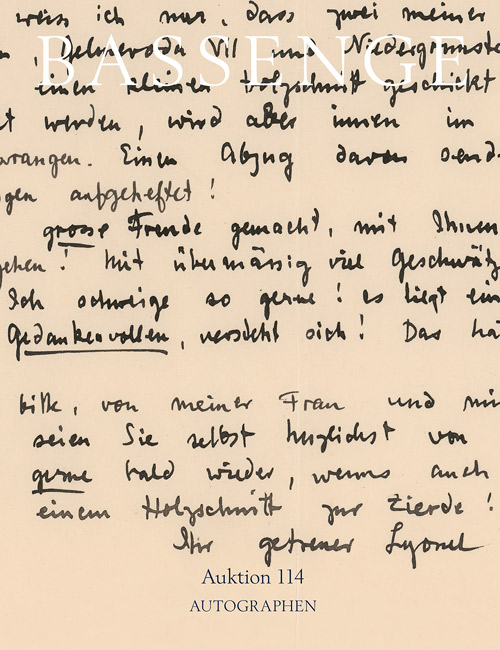 weis ich nur, dass zwei meiner
BASSENGE
, Dobrovoda VII und
einen kleinen Holzschnitt geschickt
t werden, wird aber innen im
orangen. Einen Abzug davon send
gen aufgeheftet!
grosse Freude gemacht, mit Ihnen
gehen! Mit übermässig viel Geschwätz
Ich schweige so gerne! es liegt ein
Gedankenvollen, versteht sich! Das hä
bitte, von meiner Frau und mir
seien Sie selbst herzlichst von
gerne bald wieder, wenns auch
einem Holzschnitt zur Zierde!
Ihr getreuer Lyonel
Auktion 114
AUTOGRAPHEN